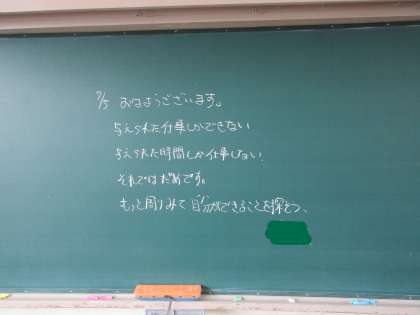 7/5 おはようございます。
与えられた仕事しかできない
与えられた時間しか仕事しない
それではだめです。
もっと周りみて自分ができることを探そう、